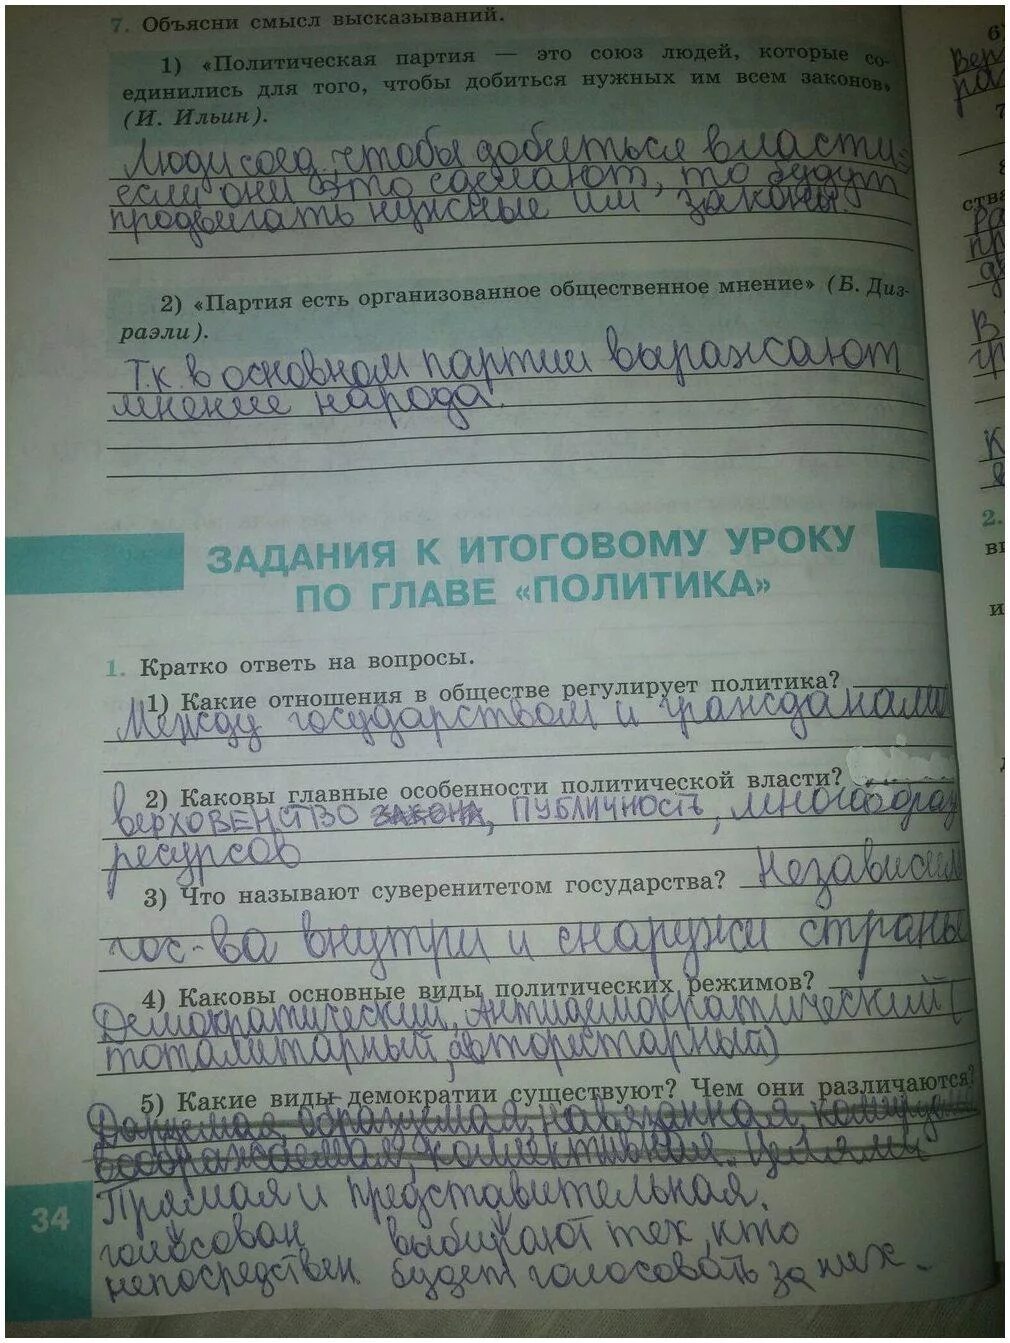 7. Объясни смысл высказываний.
1) «Политическая партия — это союз людей, которые со-
единились для того, чтобы добиться нужных им всем законов»
(И. Ильин).
Люди соед. чтобы добиться власти
если они это сделают, то будут
продвигать нужные им законы.
2) «Партия есть организованное общественное мнение» (Б. Диз-
раэли).
Т.к. в основном партии выражают
мнение народа.
ЗАДАНИЯ К ИТОГОВОМУ УРОКУ
ПО ГЛАВЕ «ПОЛИТИКА»
1. Кратко ответь на вопросы.
1) Какие отношения в обществе регулирует политика?
Между государством и гражданами
2) Каковы главные особенности политической власти?
верховенство закона, публичность, многообраз
ресурсов
3) Что называют суверенитетом государства? Независим
гос-ва внутри и снаружи страны
4) Каковы основные виды политических режимов?
Демократический, Антидемократический (
тоталитарный, авторитарный)
5) Какие виды демократии существуют? Чем они различаются?
коллективная. Целями
Прямая и представительная.
голосован выбирают тех, кто
непосредствен будет голосовать за них.
34
6)
7
8
ства
В
К
2.
и